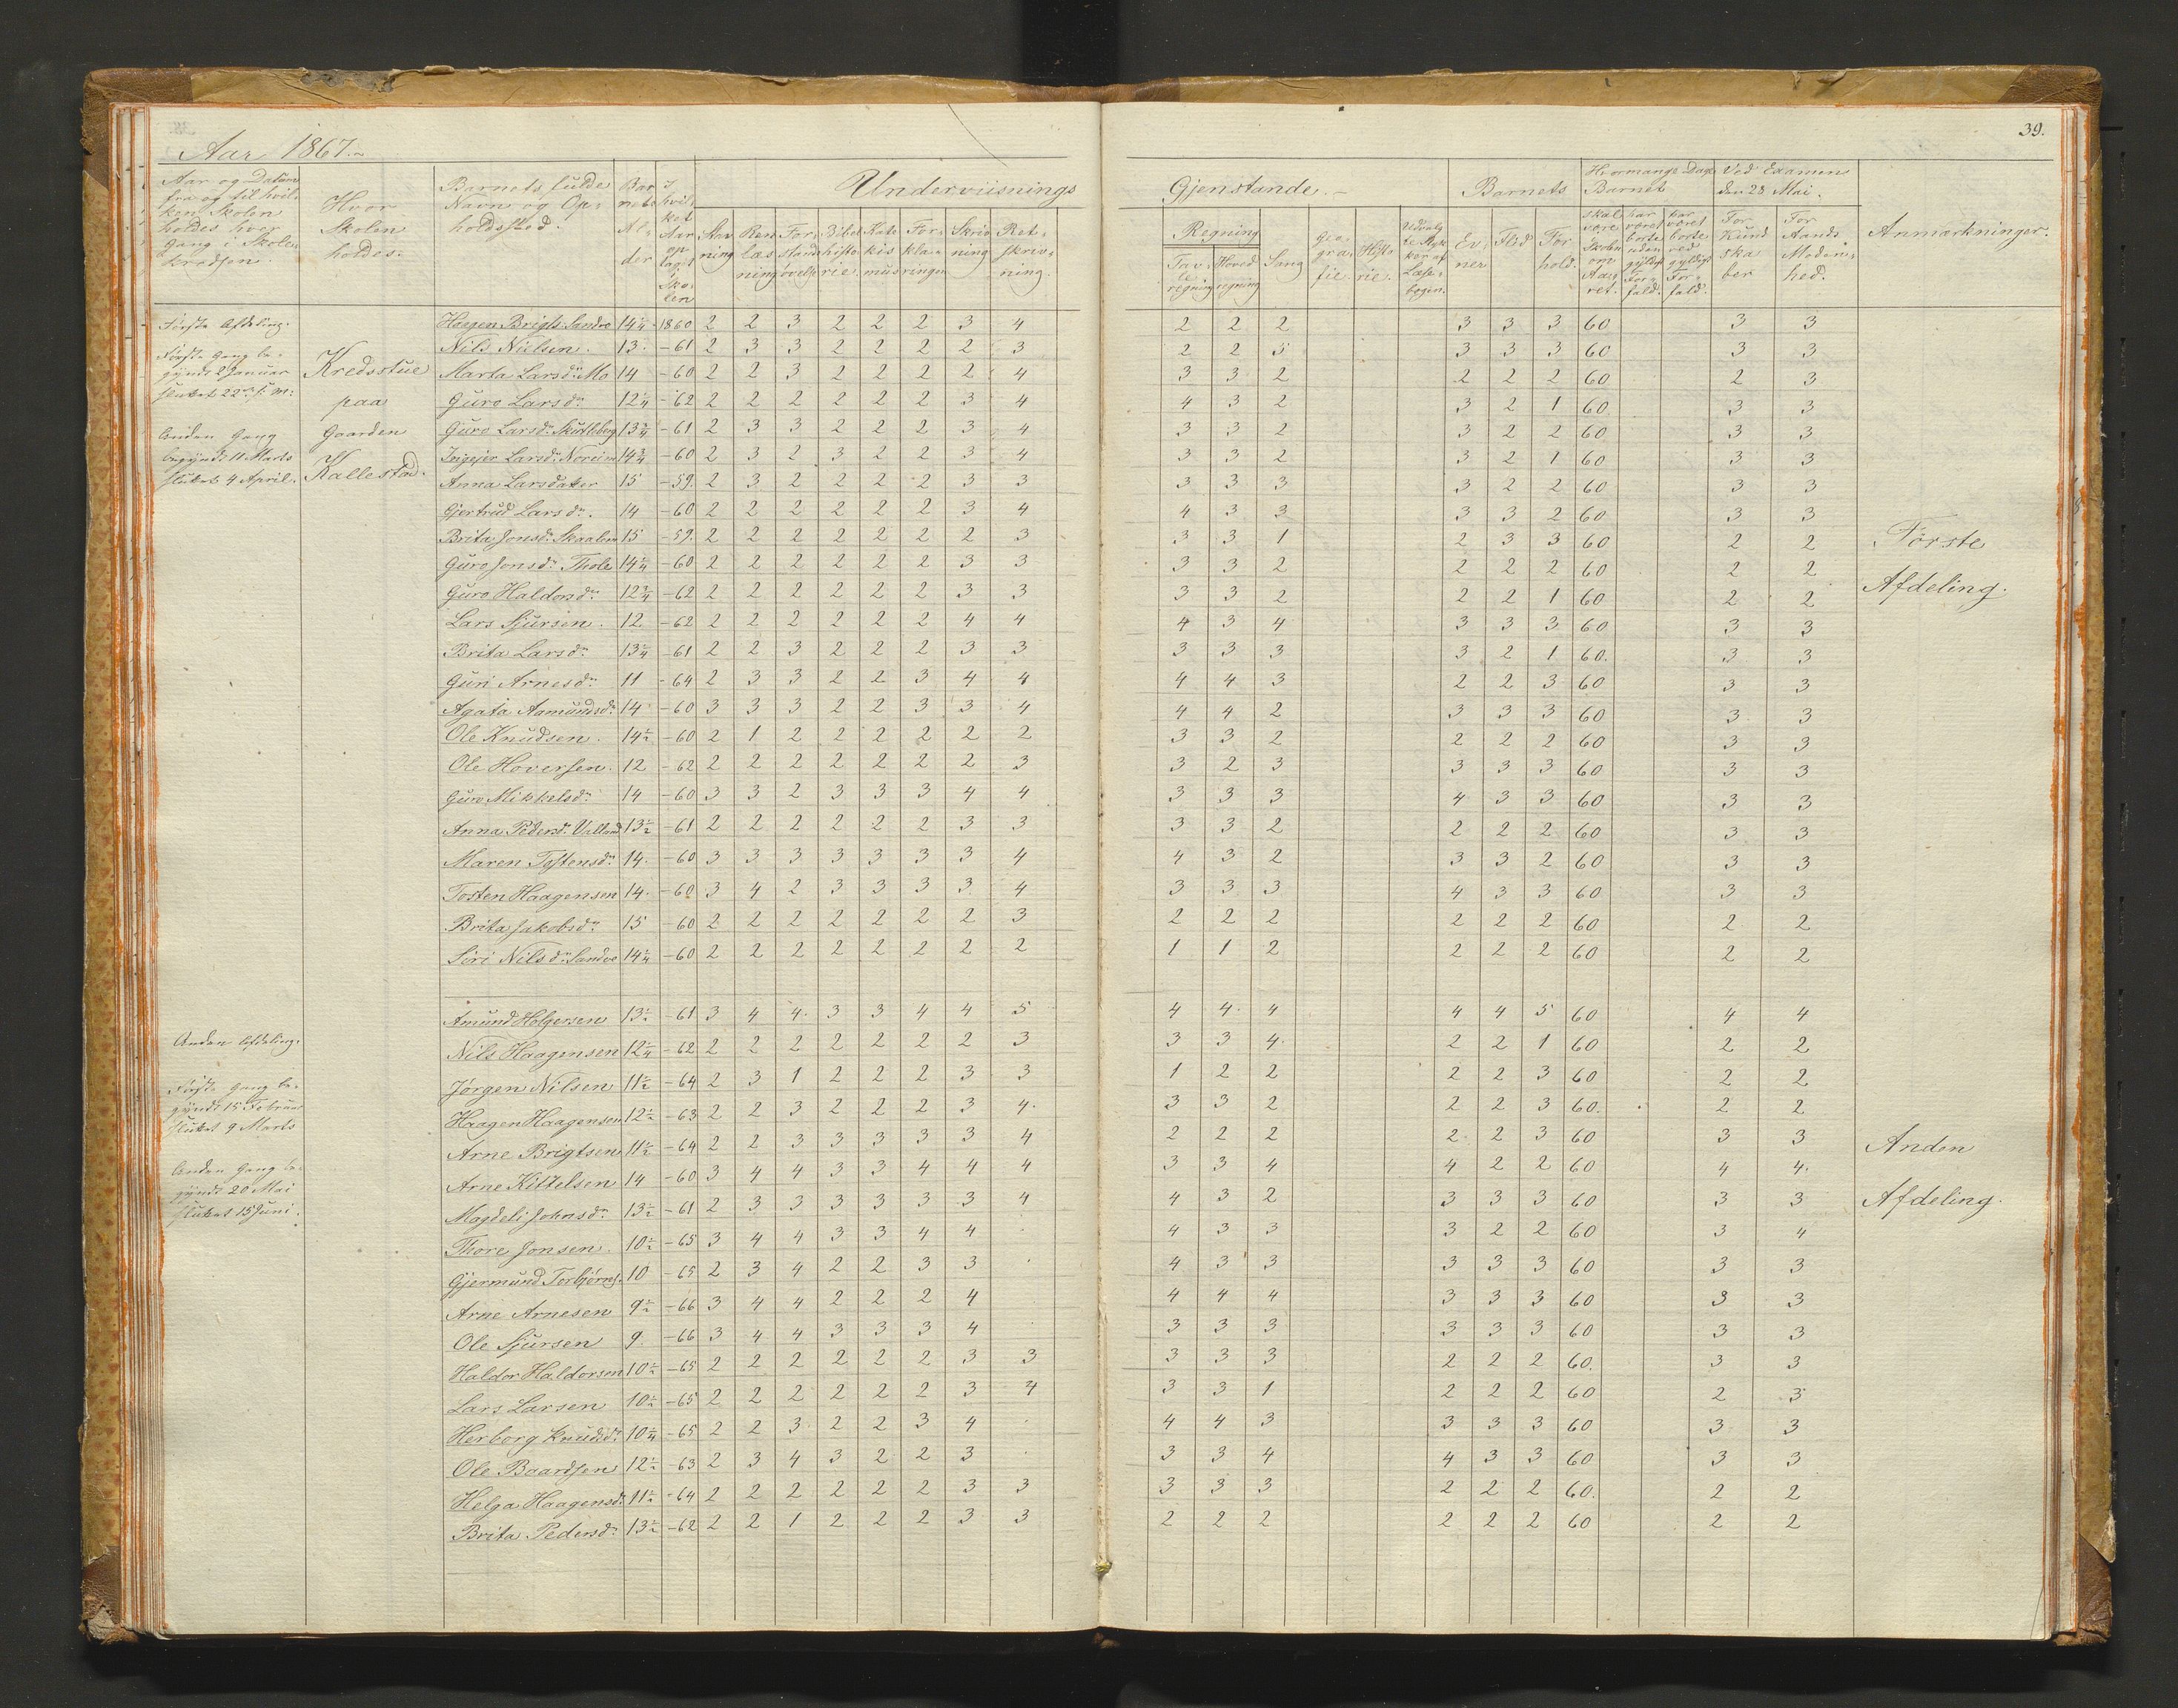 39.
Aar 1867.
Aar og Datum
fra og til hvil-
ken Skolen
holdes hver
Gang i Skole-
kredsen.
Hvor
Skolen
holdes.
Barnets fulde
Navn og Op-
holdssted.
Bar
nets
Al-
der
I
hvil-
ket
Aar
op-
taget
i
Sko-
len
Underviisnings Gjenstande.
Stav
ning
Ren
læs
ning
For-
stands
øvelse
Bibel
histo
rie.
Kate
kis
mus
For-
kla-
ringen
Skriv
ning
Ret-
skriv-
ning.
Regning
Tav-
le-
regning
Hoved
regning
Sang
Geo-
gra-
fie.
Histo
rie.
Udvalg
te Styk
ker af
Læse-
bogen.
Barnets
Ev-
ner
Flid
For
hold.
Hvormange Dage
Barnet
skal
være
Skolen
om
Aa-
ret.
har
været
borte
uden
gyldigt
For-
fald.
har
været
borte
ved
gyldigt
For-
fald.
Ved Examen
den 28 Mai.
For
Kund
ska
ber
For
Aands
Moden-
hed.
Anmærkninger.
Første Afdeling.
Første Gang be-
gyndt 2 Januar
sluttet 22
Anden Gang
begyndt 11 Marts
sluttet 4 April.
Kredsstue
paa
Gaarden
Kallestad.
Haagen Brigts. Sandve 14¼ -1860 2 2 3 2 2 2 3 4 2 2 2 3 3 3 60 3 3
Nils Nielsen. 13. -61 2 3 3 2 2 2 2 3 2 2 3 3 3 3 60 3 3
Marta Larsdr. Mo 14 -60 2 2 3 2 2 2 2 4 3 3 2 2 2 2 60 2 3
Guro Larsdr. 12¼ -62 2 2 2 2 2 2 3 4 4 3 2 3 2 1 60. 3 3
Guro Larsdr. 13¾ -61 2 3 3 2 2 2 3 4 3 3 2 3 2 2 60 3 3
Ingejer Larsdr. Noreim 14¾ -60 2 3 2 3 2 2 3 4 3 3 2 3 2 1 60 3 3
Anna Larsdatter 15 -59. 2 3 2 2 2 2 3 3 3 3 3 3 2 2 60 3 3
Gjertrud Larsdr. 14 -60 2 2 2 2 2 2 3 4 4 3 3 3 3 2 60 3 3
Brita Jonsdr. 15 -59. 2 2 2 2 2 2 2 3 3 3 1 2 3 3 60 2 2
Guro Jonsdr. Thole 14¼ -60 2 2 2 2 2 2 3 3 3 3 2 2 2 2 60 2 2
Guro Haldorsdr. 12¾ -62 2 2 2 2 2 2 3 3 3 3 2 2 2 1 60 2 2
Lars Sjursen. 12 -62 2 2 2 2 2 2 4 4 4 3 4 3 3 3 60 3 3
Brita Larsdr. 13¼ -61 2 2 3 2 2 2 3 3 3 3 3 3 2 1 60. 3 3
Guri Arnesdr. 11 -64 2 3 3 2 2 3 4 4 4 4 3 2 2 3 60 3 3
Agata Aamundsdr. 14 -60 3 3 3 2 2 3 3 4 4 4 2 3 3 3 60 3 3
Ole Knudsen. 14½ -60 2 1 2 2 2 2 2 2 3 3 2 2 2 2 60 3 3
Ole Hoversen. 12 -62 2 2 2 2 2 2 2 3 3 2 3 3 3 3 60 3 3
Guro Mikkelsdr. 14 -60 3 3 2 3 3 3 4 4 3 3 3 4 3 3 60 3 3
Anna Pedersdr. 13½ -61 2 2 2 2 2 2 3 3 3 3 2 2 2 2 60 3 3
Maren Tostensdr. 14. -60 3 3 3 3 3 3 3 4 4 3 2 3 3 2 60 3 3
Tosten Haagensen 14. -60 3 4 2 3 3 3 3 4 3 3 3 4 3 3 60 3 3
Brita Jakobsdr. 15 -60 2 2 2 2 2 2 2 3 2 2 2 2 2 2 60 2 2
Siri Nilsdr. Sandve 14¼ -60 2 2 2 2 2 2 2 2 1 1 2 2 2 2 60 2 2
Første
Afdeling.
Anden Afdeling.
Første Gang be-
gyndt 15 Februar
sluttet 9 Marts
Anden Gang be-
gyndt 20 Mai
sluttet 15 Juni.
Amund Holgersen 13½ -61 3 4 4. 3 3 4 4 5 4 4 4 4 4 5 60 4 4
Nils Haagensen 12¼ -62 2 2 2 2 2 2 2 3 3 3 4 2 2 1 60 2 2
Jørgen Nilsen 11½ -64 2 3 1 2 2 2 3 3 1 2 2 2 2 3 60 2 2
Haagen Haagensen 12½ -63 2 2 3 2 2 2 3 4. 3 3 2 2 2 3 60. 2 2
Arne Brigtsen 11½ -64 2 2 3 3 3 3 3 4 2 2 2 2 2 3 60 3 3
Arne Kittelsen 14 -60 3 4 4 3 3 4 4 4 3 3 4 4 2 2 60 4 4.
Magdeli Johnsdr. 13½ -61 2 3 3 3 3 3 3 4 4 3 2 3 3 3 60 3 3
Thore Jonsen. 10½ -65 3 4 4 3 3 4 4 4 3 3 3 2 2 60 3 4
Gjermund Torbjørns. 10 -65 2 3 4 2 2 3 3 4 3 3 3 3 3 60 3 3
Arne Arnesen 9½ -66 3 4 4 2 2 2 4 4 4 4 3 3 3 60 3 3
Ole Sjursen 9. -66 3 4 4 3 3 3 4 3 3 3 3 3 3 60 3 3
Haldor Haldorsen 10½ -65 2 2 2 2 2 2 3 3 3 3 3 2 2 2 60. 3 3
Lars Larsen 10½ -65 2 2 2 2 2 2 3 4 3 3 1 2 2 2 60 2 3
Herborg Knudsdr. 10¼ -65 2 2 3 2 2 3 4 4 4 3 3 3 3 60 3 3
Ole Baardsen 12½ -63 2 3 4 3 2 2 3 3 3 4 4 3 3 60 3 3
Helga Haagensdr. 11½ -64 2 2 2 2 2 2 3 3 3 3 3 2 2 2 60. 2 2
Brita Pedersdr. 13½ -62 2 2 1 2 2 2 3 3 2 2 2 2 2 2 60 2 2
Anden
Afdeling.